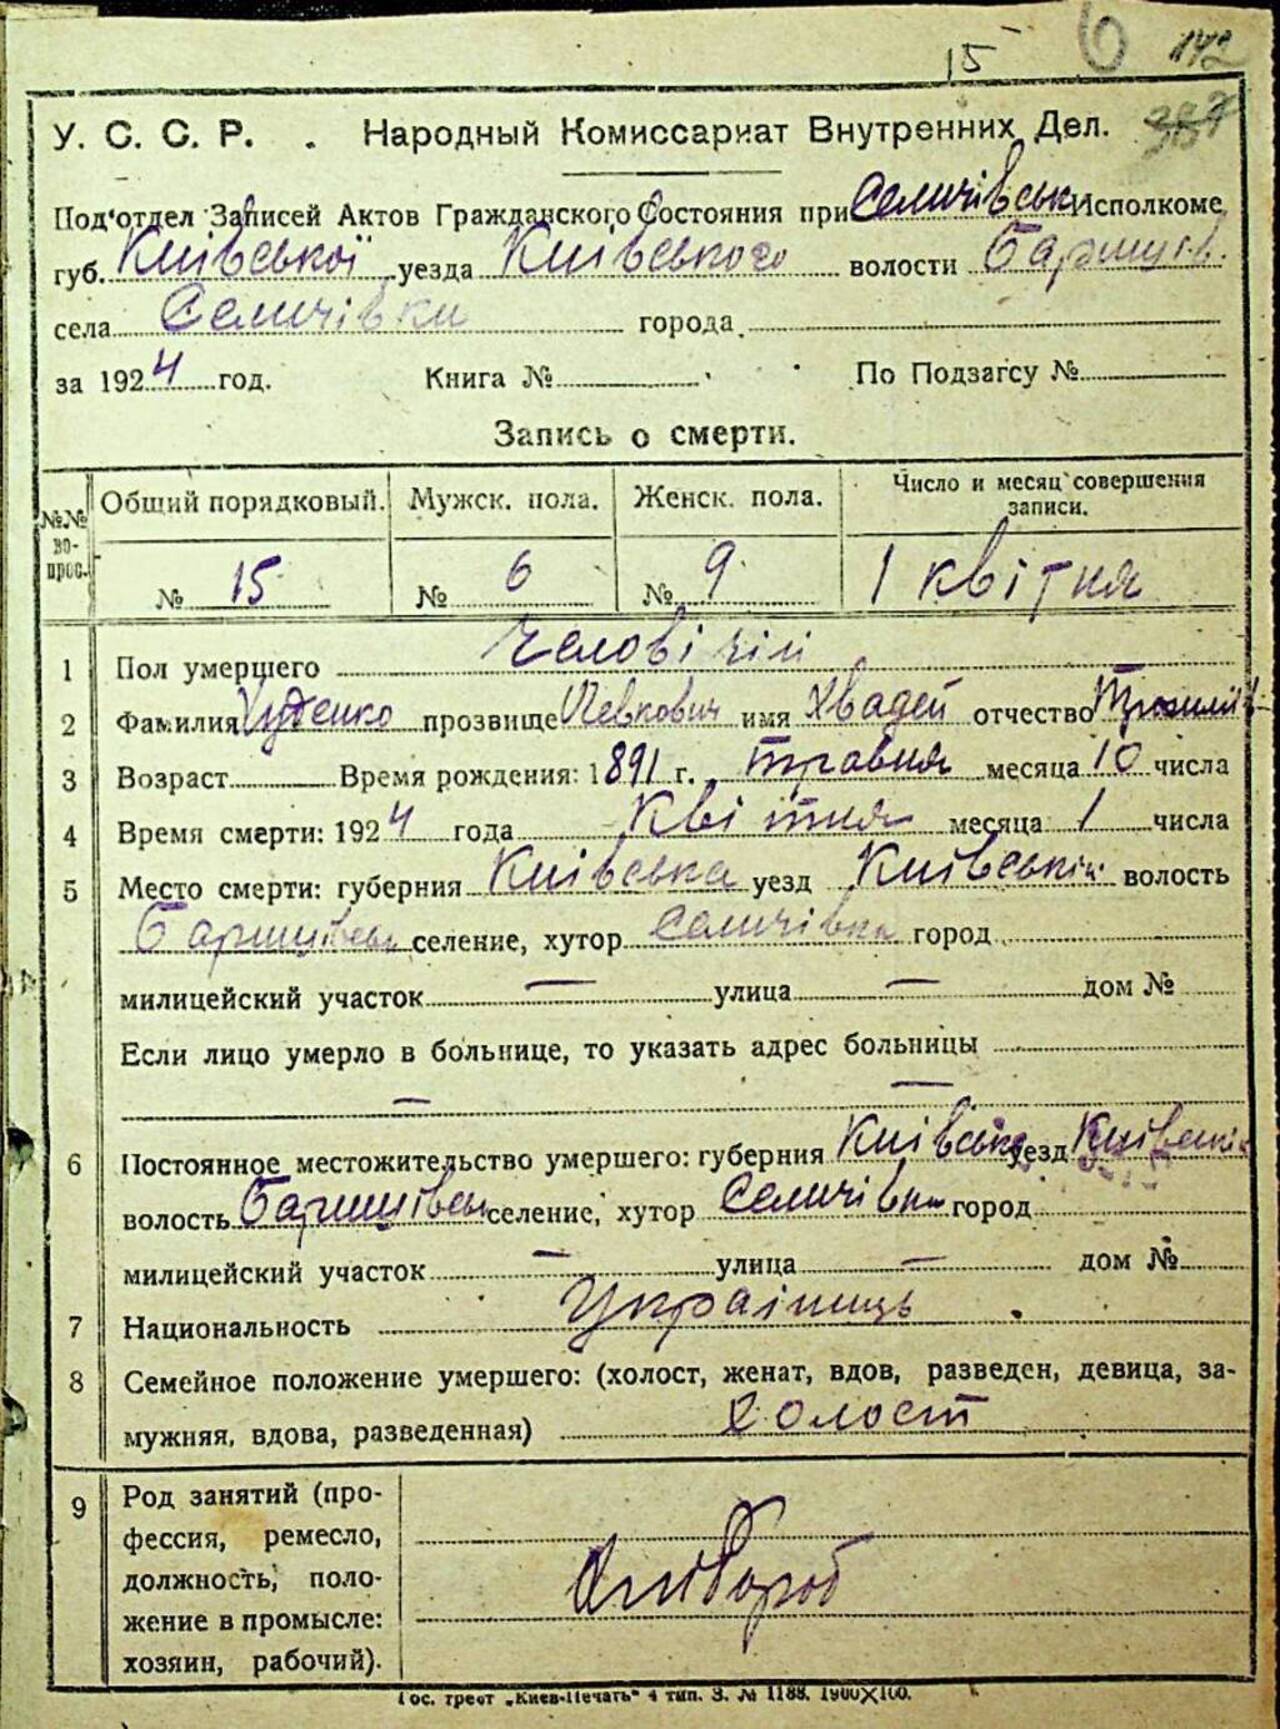 15 6 142
У. С. С. Р. . Народный Комиссариат Внутренних Дел.
Под'отдел Записей Актов Гражданского Состояния при Селичівськ Исполкоме
губ. Київської уезда Київського волости Баришів.
села Селичівки города
за 1924 год. Книга № По Подзагсу №
Запись о смерти.
№№ вопрос. Общий порядковый. Мужск. пола. Женск. пола. Число и месяц совершения записи.
№ 15 № 6 № 9 1 квітня
1 Пол умершего человічій
2 Фамилия прозвище Левкович имя Хвадей отчество
3 Возраст Время рождения: 1891 г. травня месяца 10 числа
4 Время смерти: 1924 года Квітня месяца 1 числа
5 Место смерти: губерния Київська уезд Київський волость
Баришівськ селение, хутор Селичівка город
милицейский участок — улица — дом №
Если лицо умерло в больнице, то указать адрес больницы
— —
6 Постоянное местожительство умершего: губерния Київська уезд Київський
волость Баришівськ селение, хутор Селичівка город
милицейский участок — улица — дом №
7 Национальность Українець
8 Семейное положение умершего: (холост, женат, вдов, разведен, девица, за-
мужняя, вдова, разведенная) холост
9 Род занятий (про-
фессия, ремесло,
должность, поло-
жение в промысле:
хозяин, рабочий).
Хлібороб
Гос. трест „Киев-Печать" 4 тип. З. № 1188. 1900×100.